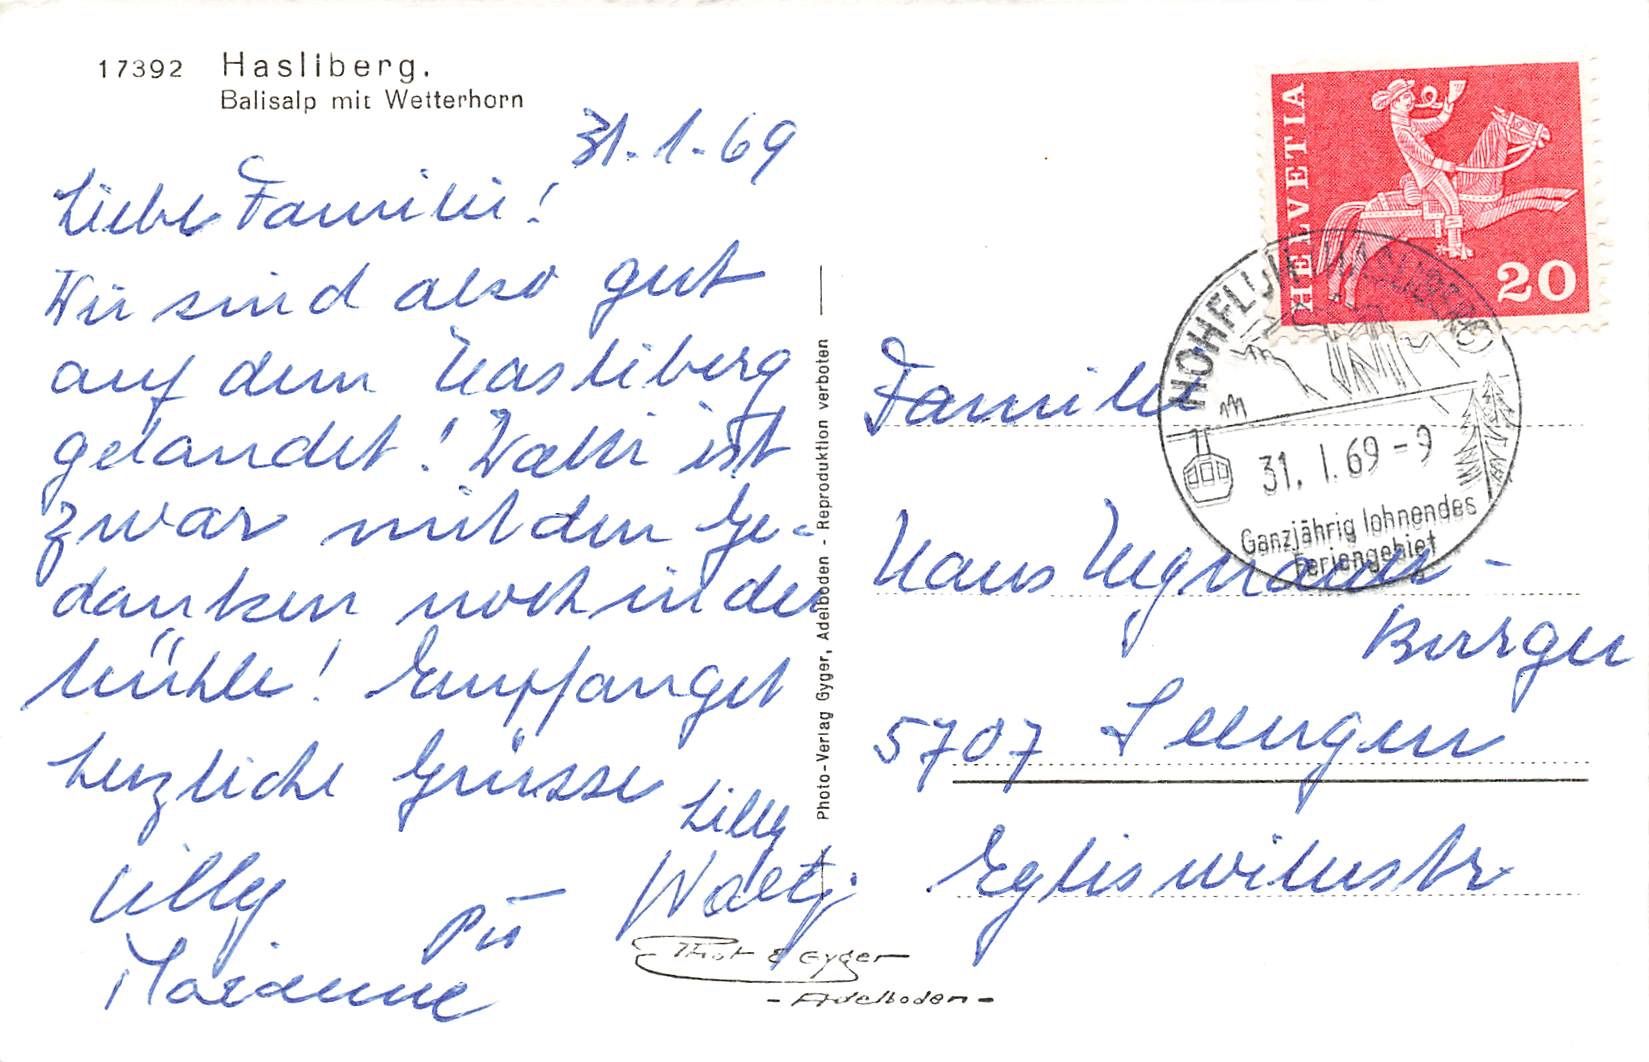 17392 Hasliberg.
Balisalp mit Wetterhorn
31.1.69
Liebe Familie!
Wir sind also gut
auf dem Hasliberg
gelandet! Walti ist
zwar mit den Ge-
danken noch in der
Mühle! Empfanget
herzliche Grüsse
Lilly
Willy Pia Walty
Marianne
Photo-Verlag Gyger, Adelboden - Reproduktion verboten
Phot E Gyger
- Adelboden -
HELVETIA
20
HOHFLUH HASLIBERG
31. 1. 69 - 9
Ganzjährig lohnendes
Feriengebiet
Familie
Hans
Burger
5707 Seengen
Egliswilerstr